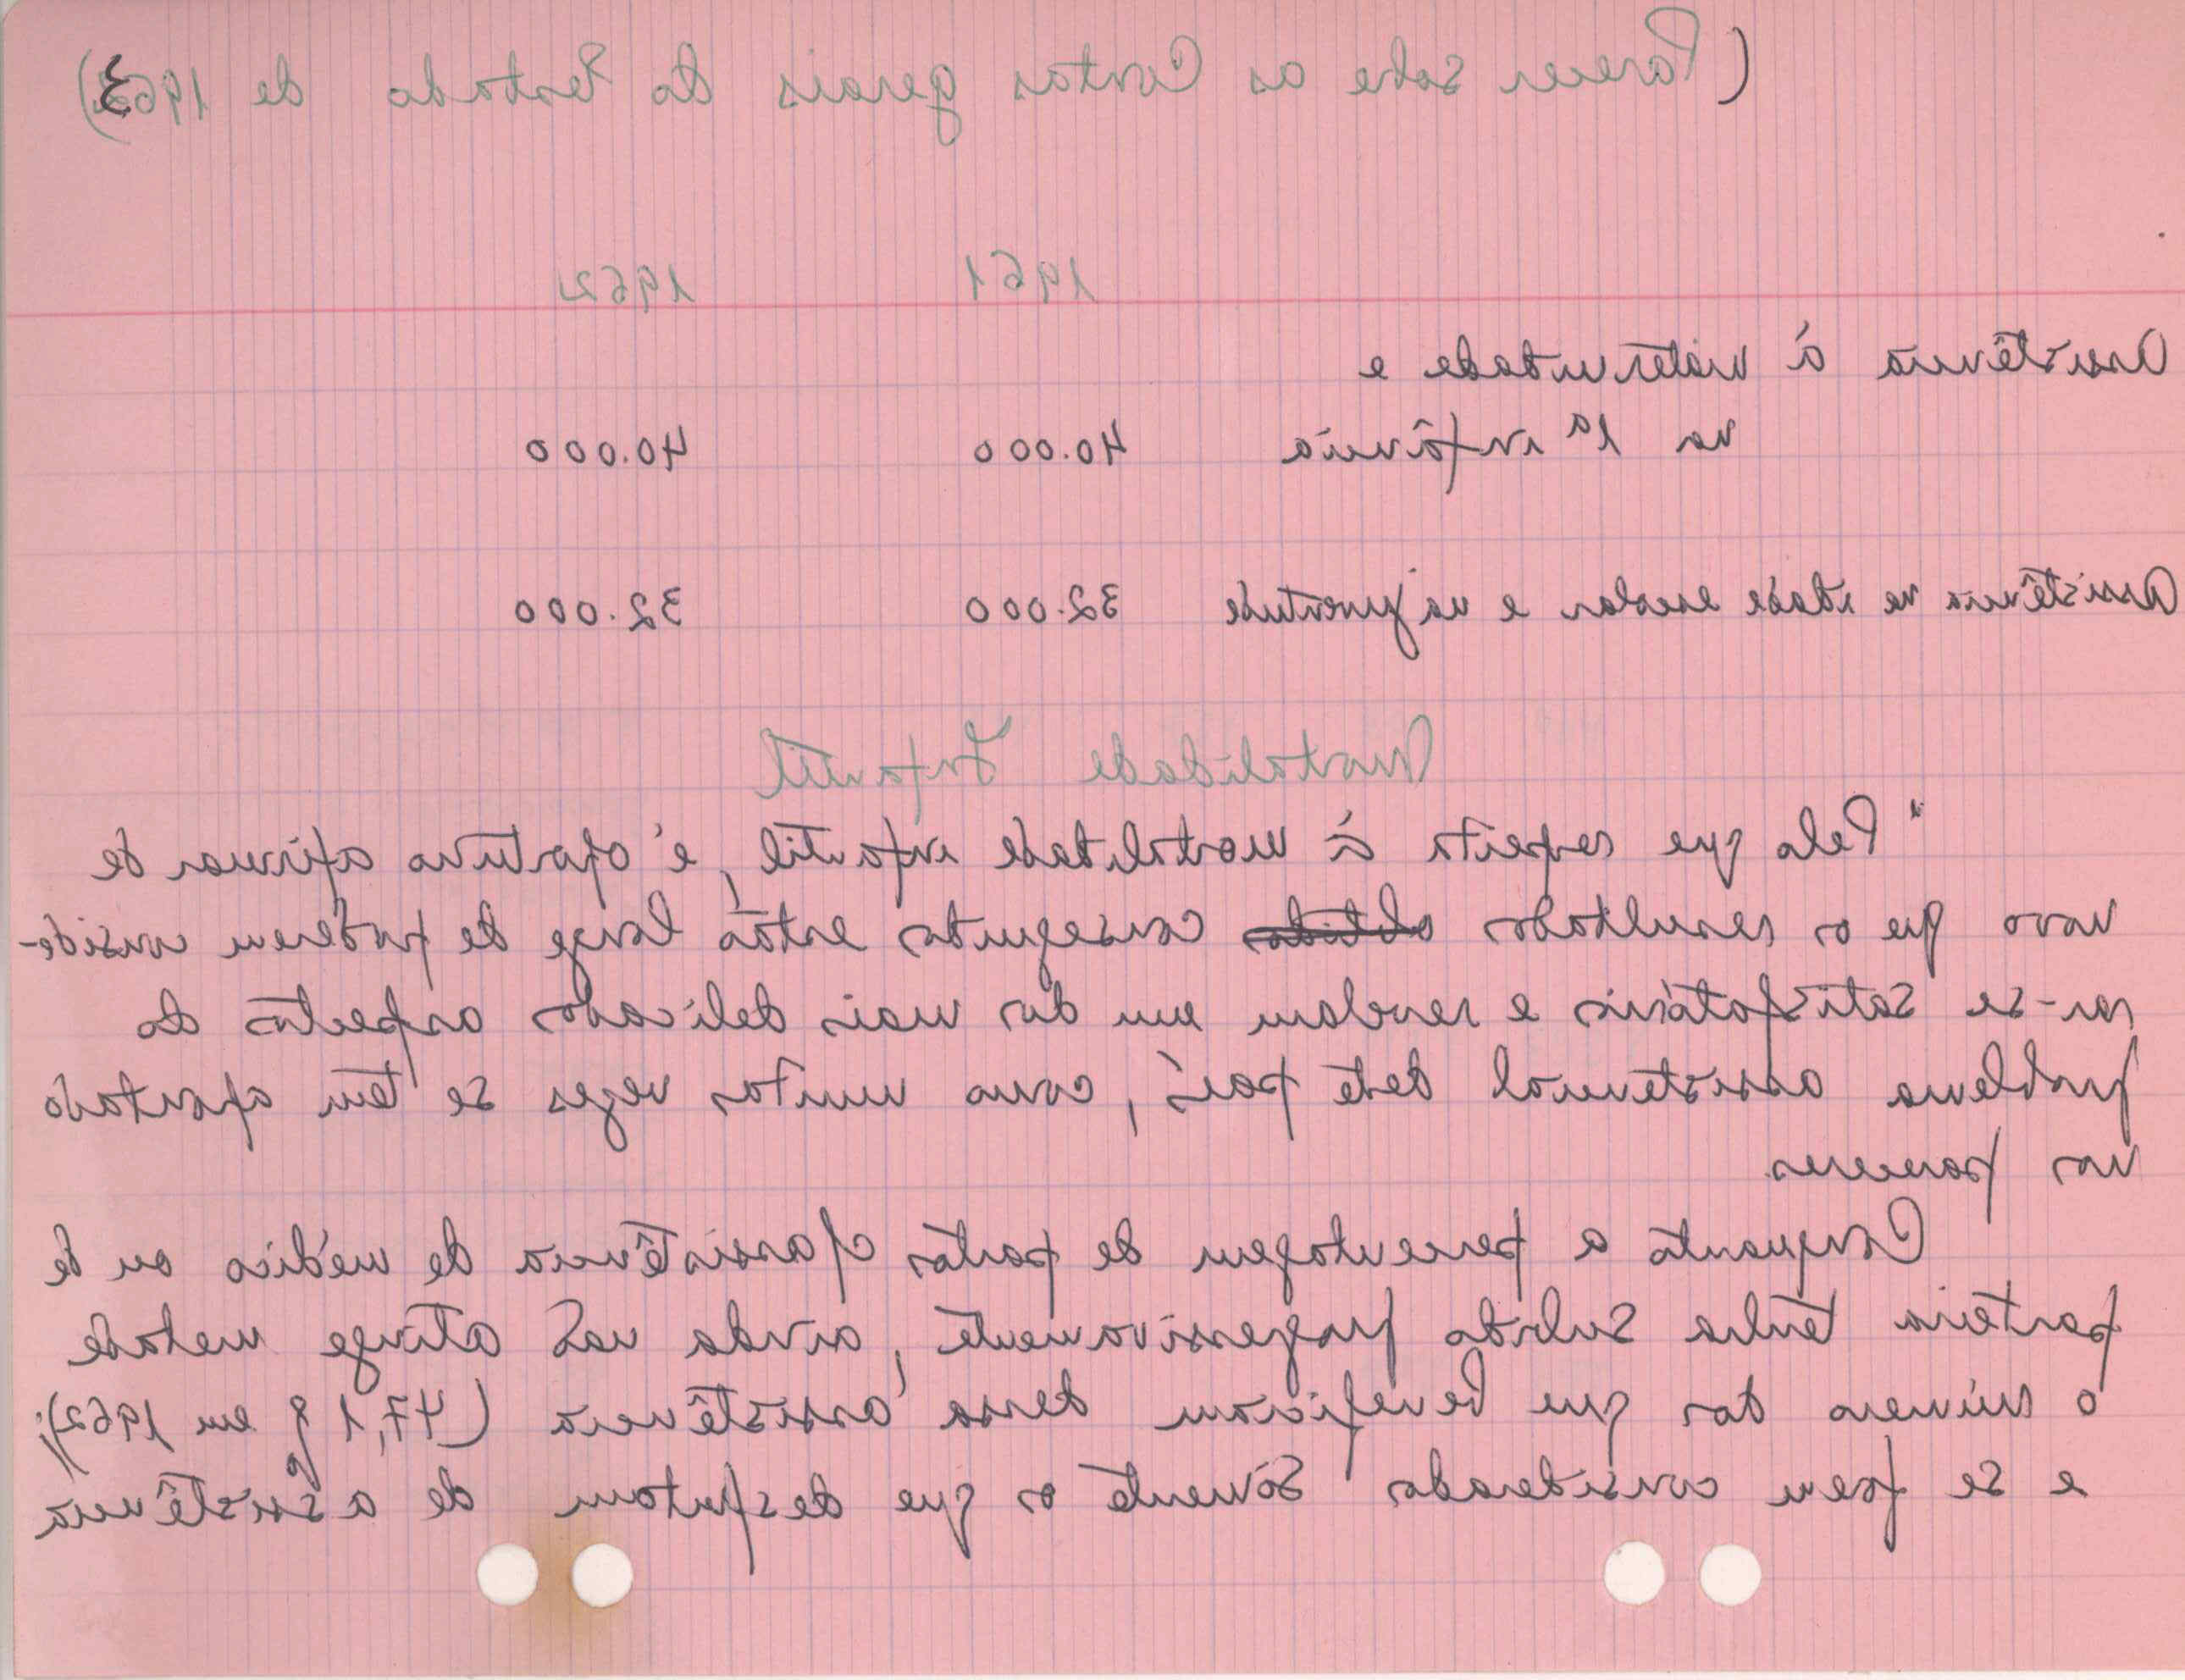 (Parecer sobre as Contas gerais do Estado de 1963)
1961 1962
Assistência á maternidade e
na 1ª infância 40.000 40.000
Assistência na idade escolar e na juventude 32.000 32.000
Mortalidade Infantil
"Pelo que respeita á mortalidade infantil, é oportuno afirmar de
novo que os resultados obtidos conseguidos estão longe de poderem conside-
rar-se satisfatórios e revelam um dos mais delicados aspectos do
problema assistencial deste país, como muitas vezes se tem apontado
nos pareceres.
Conquanto a percentagem de partos c/assistência de médico ou de
parteira tenha subido progressivamente, ainda não atinge metade
o número dos que beneficiam dessa assistência (47,1% em 1962);
e se forem considerados sòmente os que desfrutam de assistência